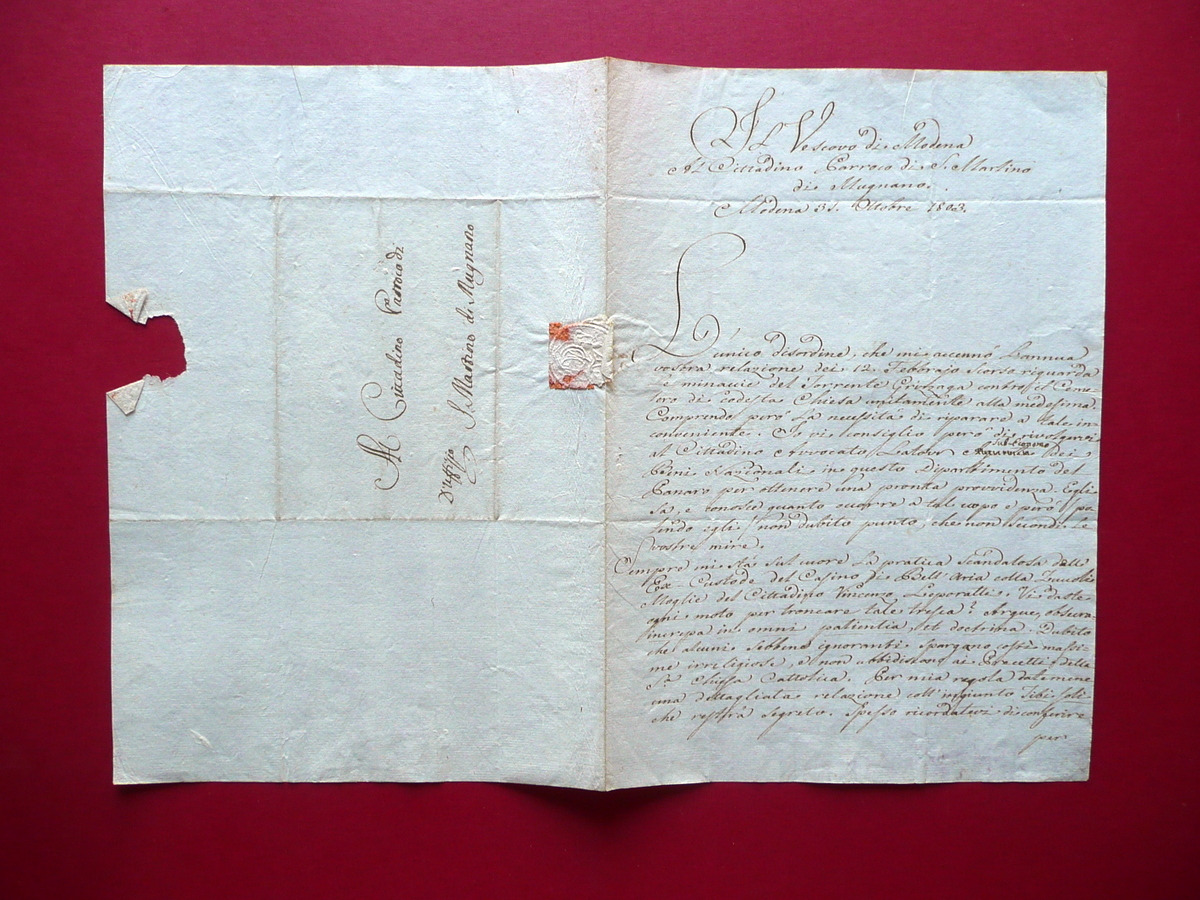 Al Cittadino Parroco di
S. Martino di Mugnano
D'uffizio
Il Vescovo di Modena
Al Cittadino Parroco di S. Martino
di Mugnano.
Modena 31. Ottobre 1803.
L'unico disordine, che mi accennò l'annua
vostra relazione dei 12. Febrajo scorso riguarda
le minaccie del Torrente contro il
di codesta Chiesa unitamente alla medesima.
Comprendo però la necessità di riparare a tale in-
conveniente. Io vi consiglio però di rivolgervi
al Cittadino Avvocato Latour Sub-Economo dei
Beni Nazionali in questo Dipartimento del
Panaro per ottenere una pronta provvidenza. Egli
sa, e conosce quanto occorre a tal uopo e però
egli non dubito punto, che non secondi le
vostre mire.
Sempre mi stà sul cuore la pratica scandalosa dello
Ex-Custode del Casino di Bell'Aria colla
Moglie del Cittadino Vincenzo Leporatti. Vi daste
ogni moto per troncare tale tresca? Argue, obsecra,
increpa in omni patientia, et doctrina. Dubito
che alcuni sebbene ignoranti spargano costì massi-
me irreligiose, e non ubbidiscano ai Precetti della
Sta. Chiesa Cattolica. Per mia regola datemene
una dettagliata relazione coll'ingiunto Tibi soli
che resterà segreto. Spesso ricordatevi di conferire
per